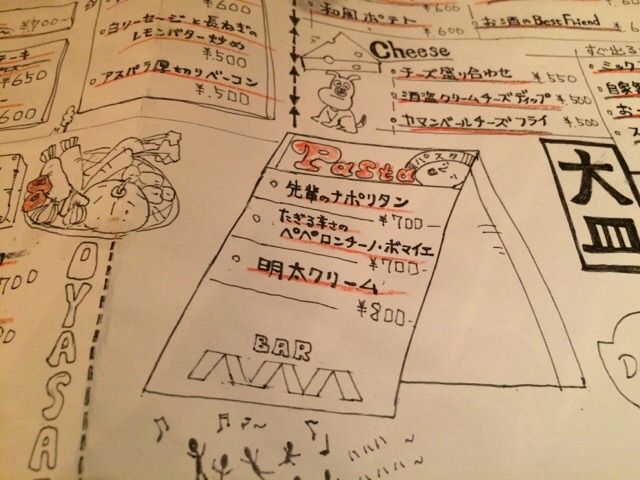 ¥700
¥600
白ソーセージと長ねぎの
レモンバター炒め
¥500
アスパラ厚切りベーコン
¥500
¥650
¥600
和風ポテト
¥600
¥600
お酒のBest Friend
Cheese
チーズ盛り合わせ ¥550
酒盗クリームチーズディップ ¥500
カマンベールチーズフライ ¥500
すぐ出る
ミック
自家製
お
大皿
Pasta
パスタ
先輩のナポリタン
¥700
たぎる辛さの
ペペロンチーノ・ボマイエ
¥700
明太クリーム
¥800
BAR
OYASA
700
ハハハ〜
ハハハハ〜
D